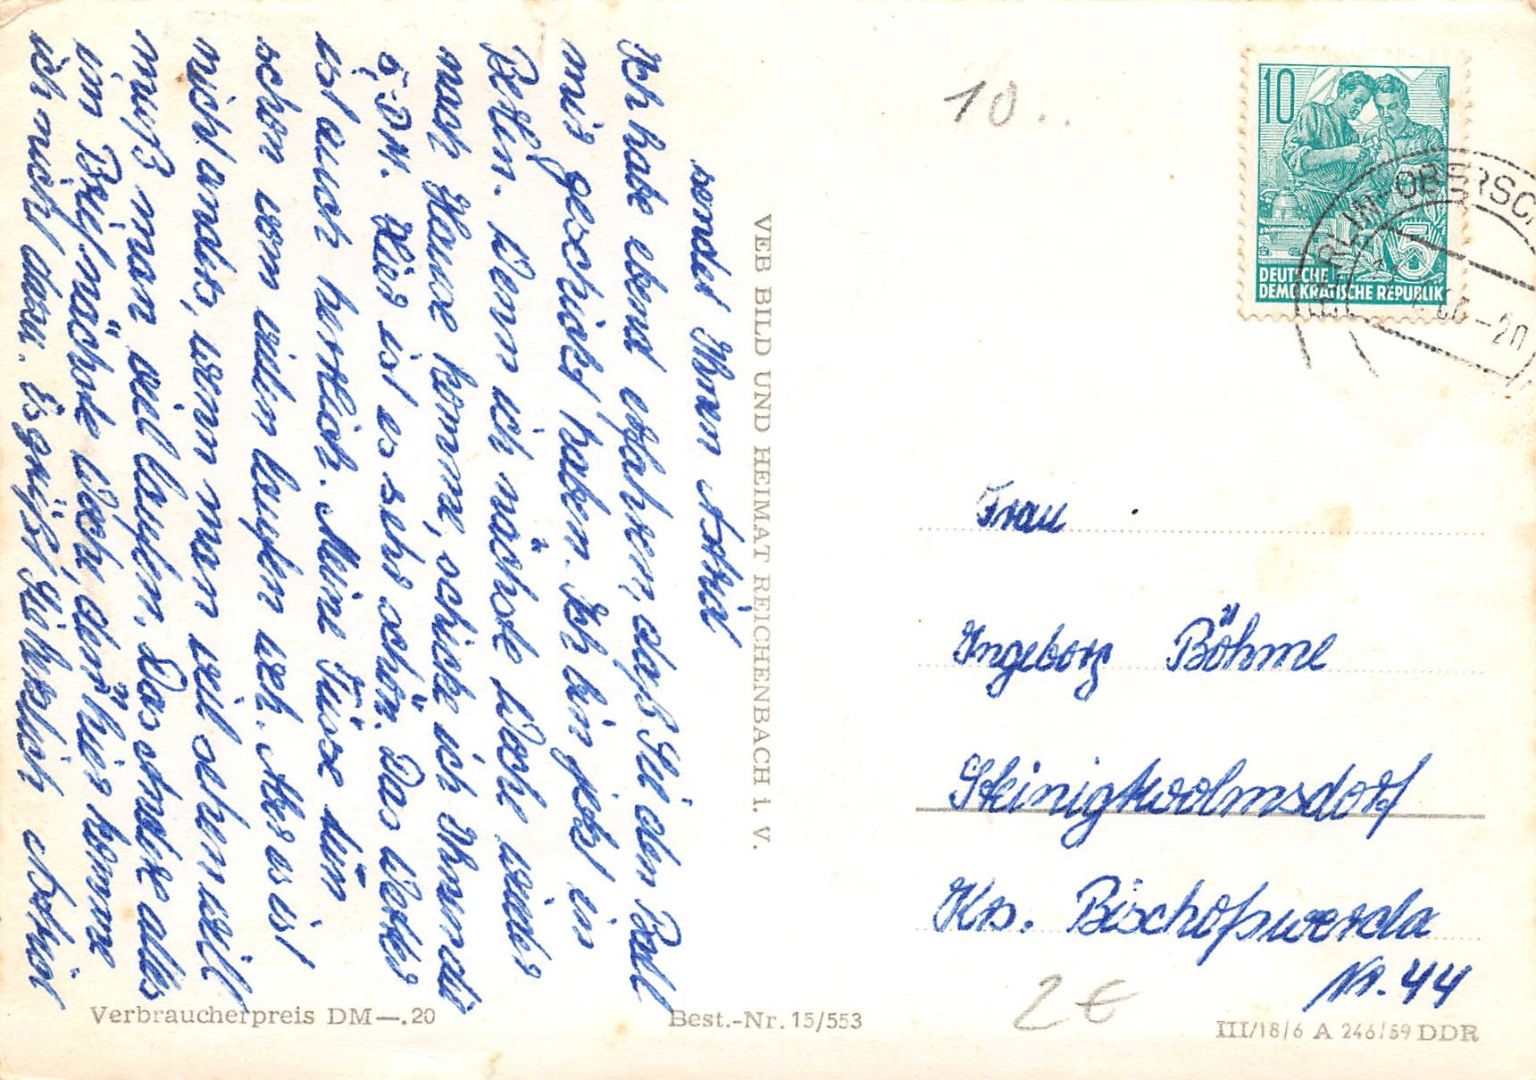 Ich habe eben erfahren, daß Sie den Ball
mir geschickt haben. Ich bin jetzt in
Berlin. Wenn ich nächste Woche wieder
nach Hause komme, schicke ich Ihnen die
5,-DM. Hier ist es sehr schön. Das Wetter
ist auch herrlich. Meine Füsse tun
schon vom vielen laufen weh. Aber es ist
nicht anders, wenn man viel sehen will
muß man viel laufen. Das andere alles
im Brief nächste Woche, denn hier komme
ich nicht dazu. Es grüßt Sie herzlich
sendet Ihnen
VEB BILD UND HEIMAT REICHENBACH i. V.
10..
10
DEUTSCHE
DEMOKRATISCHE REPUBLIK
BERLIN-OBERSCH
-20
Frau
Ingeborg Böhme
Steinigtwolmsdorf
Krs. Bischofswerda
Nr. 44
2 €
Verbraucherpreis DM—.20
Best.-Nr. 15/553
III/18/6 A 246/59 DDR